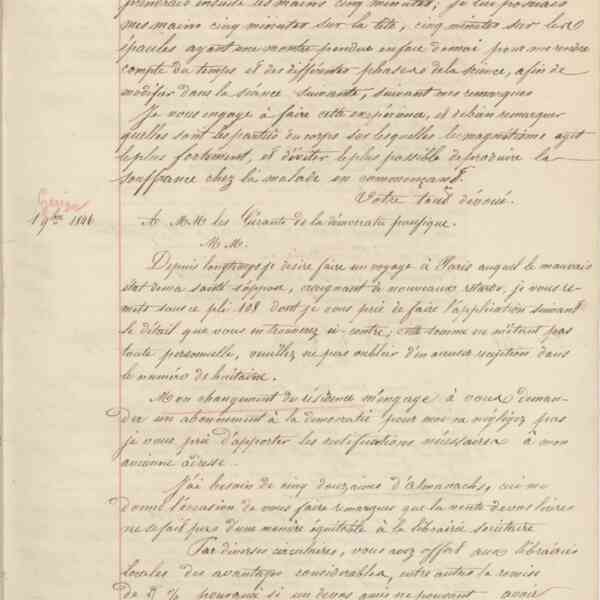 prendrais ensuite les mains cinq minutes, je lui poserais
mes mains cinq minutes sur la tête, cinq minutes sur les
épaules ayant une montre pendue en face de moi pour me rendre
compte du temps et des différentes phases de la science, afin de
modifier dans la séance suivante, suivant mes remarques
Je vous engage à faire cette expérience, et de bien remarquer
quelles sont les parties du corps sur lesquelles le magnétisme agit
le plus fortement, et d'éviter le plus possible de produire la
souffrance chez la malade en commençant.
Votre tout dévoué.
1 9bre 1846
A M.M. les Gérants de la démocratie pacifique.
M.M.
Depuis longtemps je désire faire un voyage à Paris auquel le mauvais
état de ma santé s'oppose, craignant de nouveaux retards, je vous re-
mets sous ce pli 108 dont je vous prie de faire l'application suivant
le détail que vous en trouverez ci-contre, cette somme ne m'étant pas
toute personnelle, veuillez ne pas oublier d'en accuser réception dans
le numéro de huitaine.
Mon changement de résidence m'engage à vous deman-
der un abonnement à la démocratie pour moi ne négligez pas
je vous prie d'apporter les rectifications nécessaires à mon
ancienne adresse.
J'ai besoin de cinq douzaines d'almanachs, ceci me
donne l'occasion de vous faire remarquer que la vente de vos livres
ne se fait pas d'une manière équitable à la librairie sociétaire
Par diverses circulaires, vous avez offert aux libraires
locales des avantages considérables, entre autres la remise
de % pourquoi si un de vos amis ne pouvant avoir